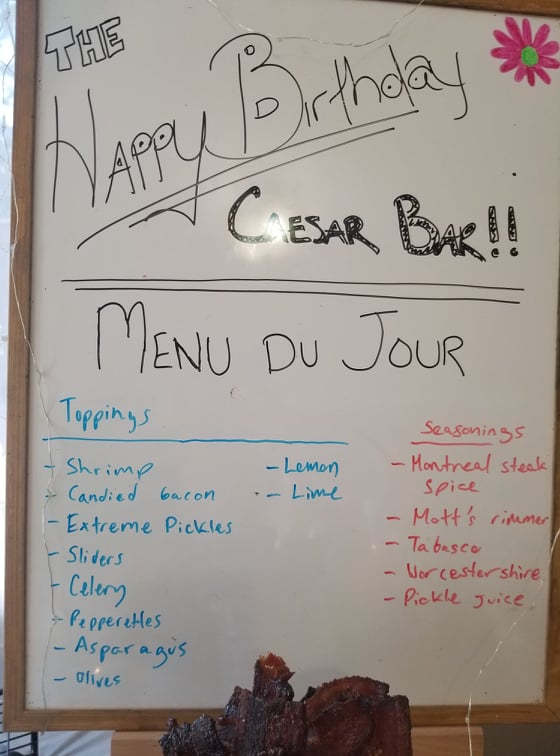 THE
HAPPY Birthday
CAESAR BAR!!
MENU DU JOUR
Toppings
- Shrimp
- Candied bacon
- Extreme Pickles
- Sliders
- Celery
- Pepperettes
- Asparagus
- Olives
- Lemon
- Lime
Seasonings
- Montreal steak
Spice
- Mott's rimmer
- Tabasco
- Worcestershire
- Pickle juice